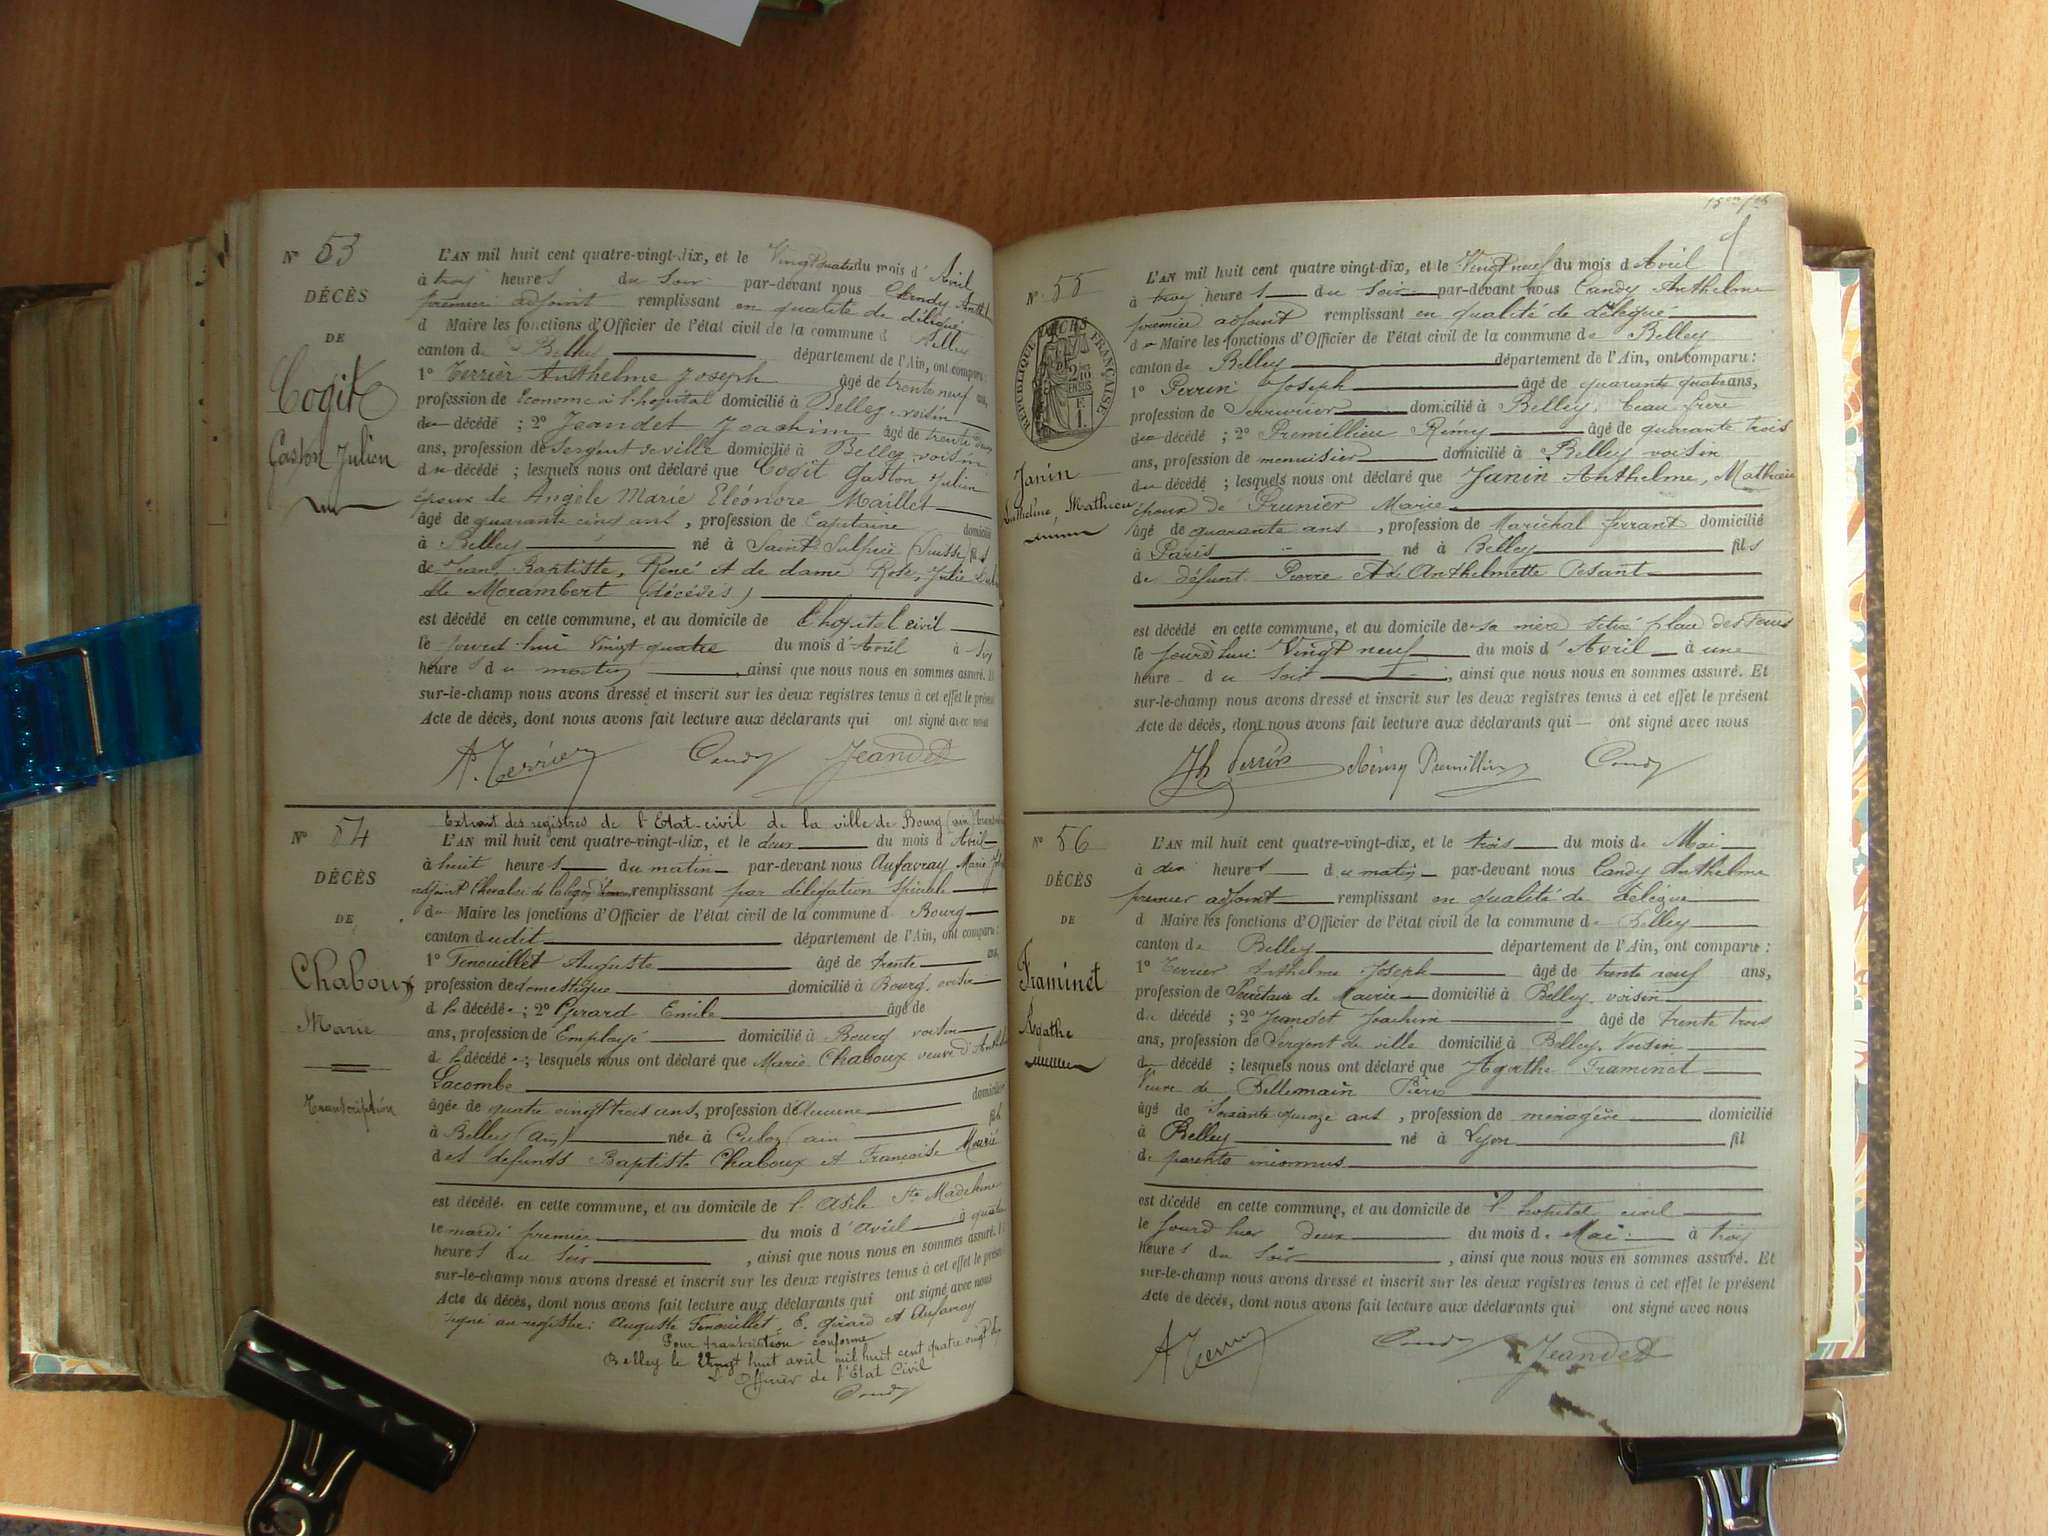 N° 53
DÉCÈS
DE
Cogit
Gaston Julien
L'AN mil huit cent quatre-vingt-dix, et le Vingt quatre du mois d'Avril
à trois heures du Soir par-devant nous Candy Anth
premier adjoint remplissant en qualité de délégué
d Maire les fonctions d'Officier de l'état civil de la commune d Belley
canton de Belley département de l'Ain, ont comparu :
1° Terrier Anthelme Joseph âgé de trente neuf ans,
profession de Econome à l'hopital domicilié à Belley, voisin
du décédé ; 2° Jeandet Joachim âgé de trente
ans, profession de Sergent de ville domicilié à Belley, voisin
du décédé ; lesquels nous ont déclaré que Cogit Gaston Julien
époux de Angèle Marie Eléonore Maillet
âgé de quarante cinq ans, profession de Capitaine domicilié
à Belley né à Saint Sulpice (Suisse) fils
de Jean, Baptiste, René et de dame Rose, Julie
de Morambert (décédés)
est décédé en cette commune, et au domicile de l'hopital civil
le jourd'hui Vingt quatre du mois d'Avril à six
heure du matin, ainsi que nous nous en sommes assuré. Et
sur-le-champ nous avons dressé et inscrit sur les deux registres tenus à cet effet le présent
Acte de décès, dont nous avons fait lecture aux déclarants qui ont signé avec nous
A. Terrier Candy Jeandet
N° 54
DÉCÈS
DE
Chaboux
Marie
Transcription
Extrait des registres de l'Etat-civil de la ville de Bourg (ain)
L'AN mil huit cent quatre-vingt-dix, et le deux du mois d'Avril
à huit heures du matin par-devant nous Aufavray Marie
adjoint Chevalier de la légion d'honneur remplissant par délégation spéciale
du Maire les fonctions d'Officier de l'état civil de la commune d Bourg
canton dudit département de l'Ain, ont comparu :
1° Fenouillet Auguste âgé de trente ans,
profession de domestique domicilié à Bourg, voisin
d la décédée ; 2° Gérard Emile âgé de
ans, profession de Employé domicilié à Bourg voisin
d la décédée ; lesquels nous ont déclaré que Marie Chaboux veuve d'Anthelme
Lacombe
âgée de quatre vingt trois ans, profession d'Aucune domiciliée
à Belley (ain) née à Culoz (ain) fille
des défunts Baptiste Chaboux et Françoise Mourié
est décédée en cette commune, et au domicile de l'Asile Ste Madeleine
le mardi premier du mois d'avril à quatre
heures du soir, ainsi que nous nous en sommes assuré. Et
sur-le-champ nous avons dressé et inscrit sur les deux registres tenus à cet effet le présent
Acte de décès, dont nous avons fait lecture aux déclarants qui ont signé avec nous
signé au registre : Auguste Fenouillet, E. Gérard et Aufavray
Pour transcription conforme
Belley le Vingt huit avril mil huit cent quatre vingt dix
L'Officier de l'Etat Civil
Candy
N° 55
RÉPUBLIQUE FRANÇAISE
Janin
Anthelme, Mathieu
L'AN mil huit cent quatre vingt-dix, et le Vingt neuf du mois d Avril
à trois heures du Soir par-devant nous Candy Anthelme
premier adjoint remplissant en qualité de délégué
d Maire les fonctions d'Officier de l'état civil de la commune de Belley
canton de Belley département de l'Ain, ont comparu :
1° Perrin Joseph âgé de quarante quatre ans,
profession de Serrurier domicilié à Belley, beau frère
du décédé ; 2° Premillieu Rémy âgé de quarante trois
ans, profession de menuisier domicilié à Belley voisin
du décédé ; lesquels nous ont déclaré que Janin Anthelme, Mathieu
époux de Prunier Marie
âgé de quarante ans, profession de Maréchal ferrant domicilié
à Paris né à Belley fils
de défunt Pierre et de Anthelmette Pesant
est décédé en cette commune, et au domicile de sa mère situé place des Terreaux
le jourd'hui Vingt neuf du mois d'Avril à une
heure du soir, ainsi que nous nous en sommes assuré. Et
sur-le-champ nous avons dressé et inscrit sur les deux registres tenus à cet effet le présent
Acte de décès, dont nous avons fait lecture aux déclarants qui ont signé avec nous
Jh Perrin Rémy Premillieu Candy
N° 56
DÉCÈS
DE
Framinet
Agathe
L'AN mil huit cent quatre-vingt-dix, et le trois du mois de Mai
à dix heures du matin par-devant nous Candy Anthelme
premier adjoint remplissant en qualité de délégué
d Maire les fonctions d'Officier de l'état civil de la commune de Belley
canton de Belley département de l'Ain, ont comparu :
1° Terrier Anthelme Joseph âgé de trente neuf ans,
profession de Secrétaire de Mairie domicilié à Belley, voisin
du décédé ; 2° Jeandet Joachim âgé de trente trois
ans, profession de Sergent de ville domicilié à Belley, voisin
du décédé ; lesquels nous ont déclaré que Agathe Framinet
Veuve de Bellemain Pière
âgé de soixante quinze ans, profession de ménagère domicilié
à Belley né à Lyon fil
de parents inconnus
est décédé en cette commune, et au domicile de l'hopital civil
le jourd hier deux du mois de Mai à trois
heures du Soir, ainsi que nous nous en sommes assuré. Et
sur-le-champ nous avons dressé et inscrit sur les deux registres tenus à cet effet le présent
Acte de décès, dont nous avons fait lecture aux déclarants qui ont signé avec nous
A Terrier Candy Jeandet